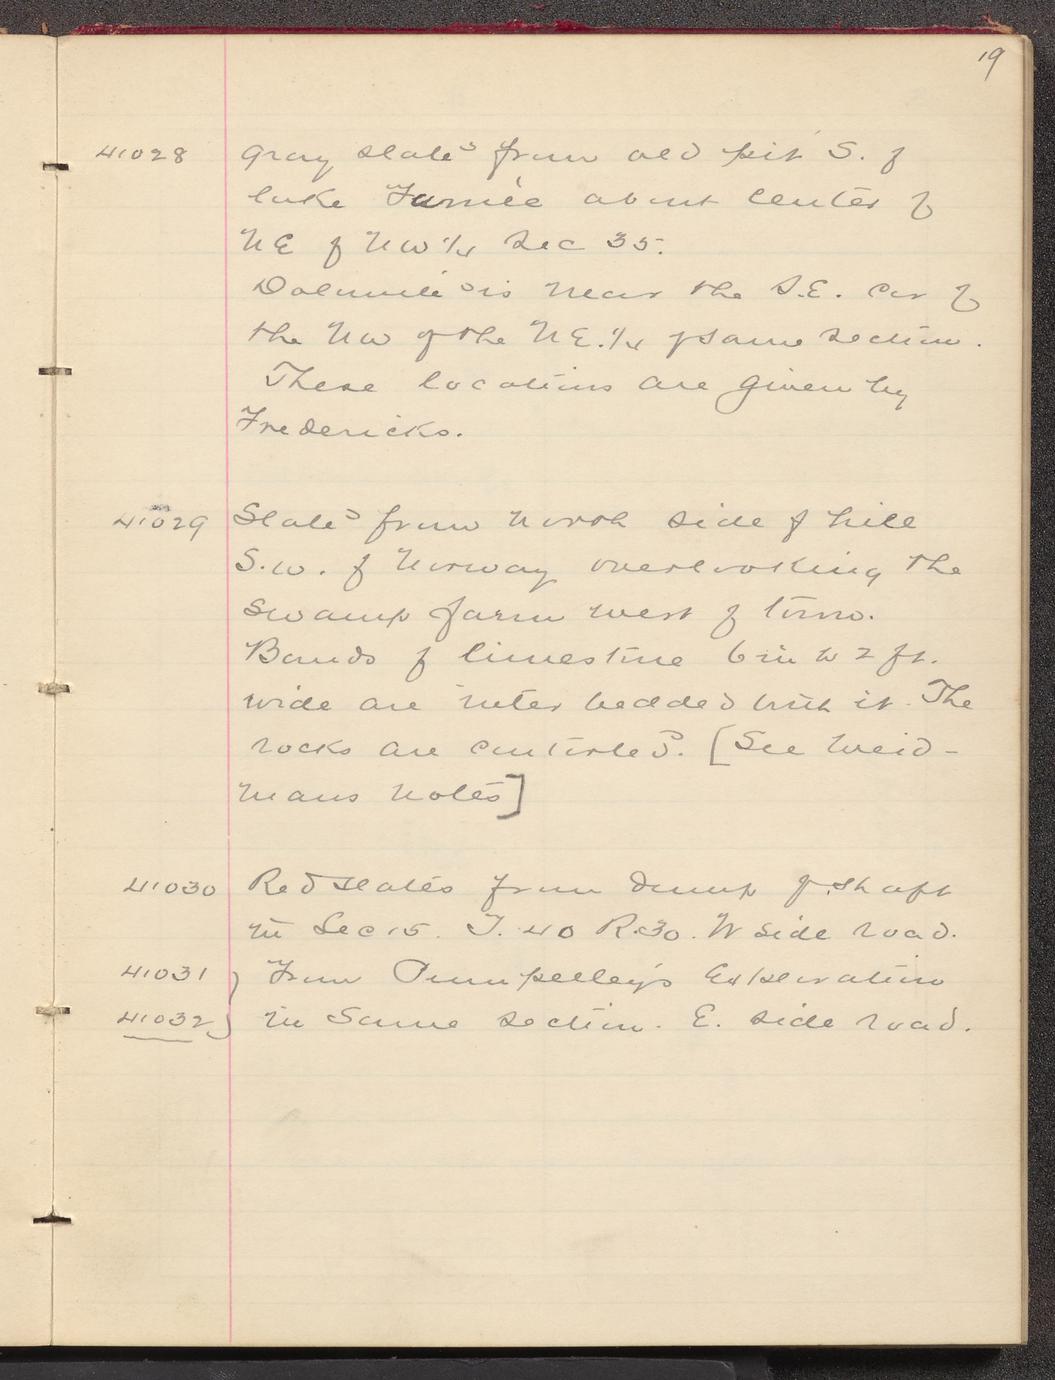 19
41028 Gray slates from old pit S. of
lake Fumee about center of
NE of NW 1/4 Sec 35.
Dolomite is near the S.E. cor of
the NW of the NE. 1/4 of same section.
These locations are given by
Fredericks.
41029 Slates from north side of hill
S.W. of Norway overlooking the
swamp farm west of town.
Bands of limestone 6 in to 2 ft.
wide are inter bedded with it. The
rocks are contorted. [See Weid-
mans notes]
41030 Red slates from dump of shaft
in Sec 15. T. 40 R. 30. W side road.
41031 } From Pumpelley's Exploration
41032 } in same section. E. side road.